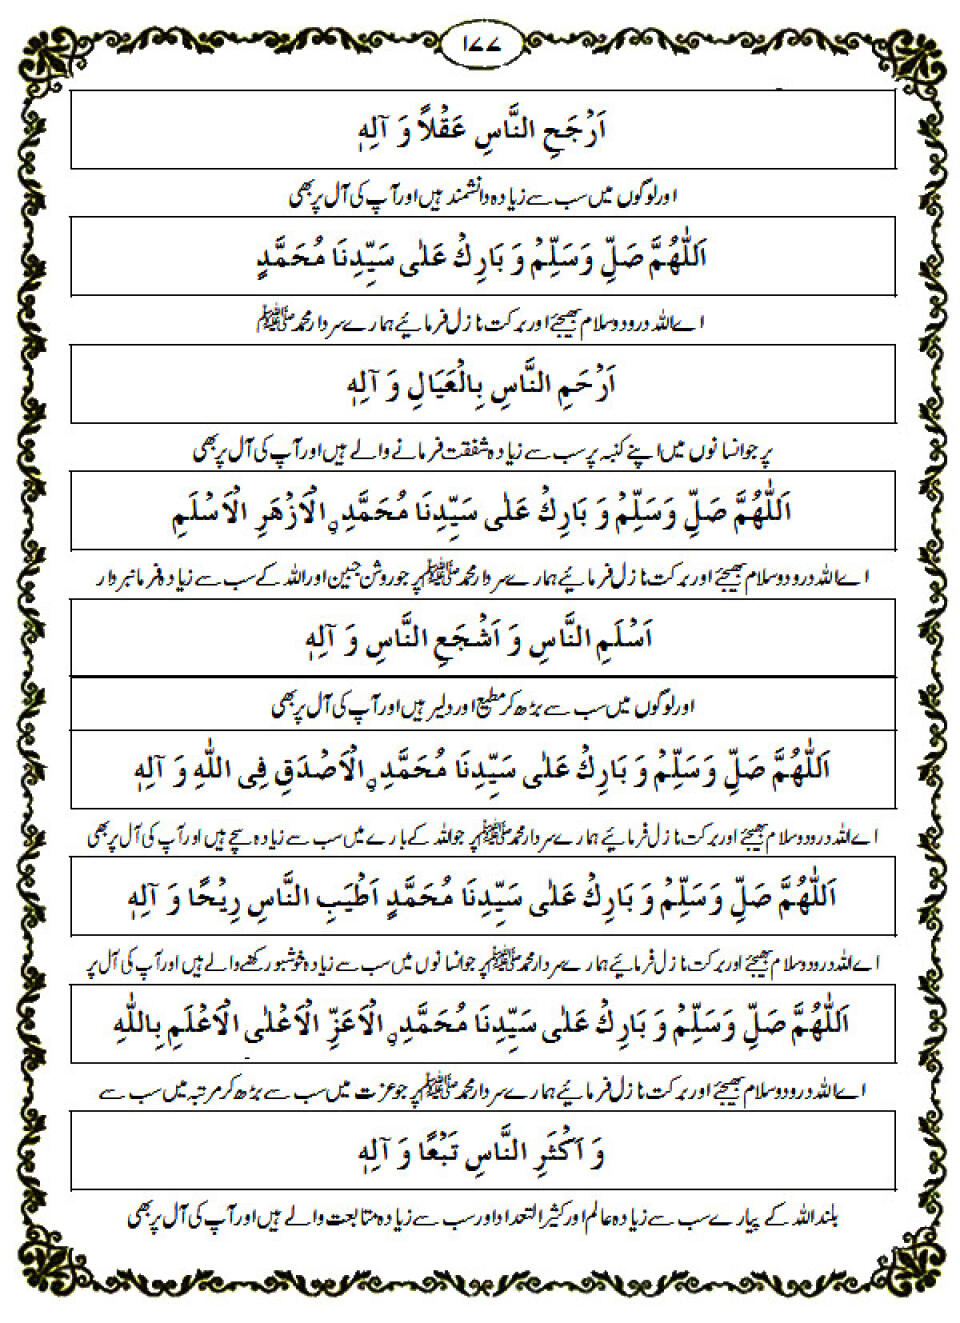 ۱۷۷
اَرْجَحِ النَّاسِ عَقْلًا وَ آلِهٖ
اور لوگوں میں سب سے زیادہ دانشمند ہیں اور آپ کی آل پر بھی
اَللّٰهُمَّ صَلِّ وَسَلِّمْ وَ بَارِكْ عَلٰى سَيِّدِنَا مُحَمَّدٍ
اے اللہ درود و سلام بھیجئے اور برکت نازل فرمائیے ہمارے سردار محمد ﷺ
اَرْحَمِ النَّاسِ بِالْعَيَالِ وَ آلِهٖ
پر جو انسانوں میں اپنے کنبہ پر سب سے زیادہ شفقت فرمانے والے ہیں اور آپ کی آل پر بھی
اَللّٰهُمَّ صَلِّ وَسَلِّمْ وَ بَارِكْ عَلٰى سَيِّدِنَا مُحَمَّدِ ۣالْاَزْهَرِ الْاَسْلَمِ
اے اللہ درود و سلام بھیجئے اور برکت نازل فرمائیے ہمارے سردار محمد ﷺ پر جو روشن جبین اور اللہ کے سب سے زیادہ فرمانبردار
اَسْلَمِ النَّاسِ وَ اَشْجَعِ النَّاسِ وَ آلِهٖ
اور لوگوں میں سب سے بڑھ کر مطیع اور دلیر ہیں اور آپ کی آل پر بھی
اَللّٰهُمَّ صَلِّ وَسَلِّمْ وَ بَارِكْ عَلٰى سَيِّدِنَا مُحَمَّدِ ۣالْاَصْدَقِ فِى اللّٰهِ وَ آلِهٖ
اے اللہ درود و سلام بھیجئے اور برکت نازل فرمائیے ہمارے سردار محمد ﷺ پر جو اللہ کے بارے میں سب سے زیادہ سچے ہیں اور آپ کی آل پر بھی
اَللّٰهُمَّ صَلِّ وَسَلِّمْ وَ بَارِكْ عَلٰى سَيِّدِنَا مُحَمَّدٍ اَطْيَبِ النَّاسِ رِيْحًا وَ آلِهٖ
اے اللہ درود و سلام بھیجئے اور برکت نازل فرمائیے ہمارے سردار محمد ﷺ پر جو انسانوں میں سب سے زیادہ خوشبو رکھنے والے ہیں اور آپ کی آل پر
اَللّٰهُمَّ صَلِّ وَسَلِّمْ وَ بَارِكْ عَلٰى سَيِّدِنَا مُحَمَّدِ ۣالْاَعَزِّ الْاَعْلٰى الْاَعْلَمِ بِاللّٰهِ
اے اللہ درود و سلام بھیجئے اور برکت نازل فرمائیے ہمارے سردار محمد ﷺ پر جو عزت میں سب سے بڑھ کر مرتبہ میں سب سے
وَ اَكْثَرِ النَّاسِ تَبْعًا وَ آلِهٖ
بلند اللہ کے پیارے سب سے زیادہ عالم اور کثیر التعداد اور سب سے زیادہ متابعت والے ہیں اور آپ کی آل پر بھی